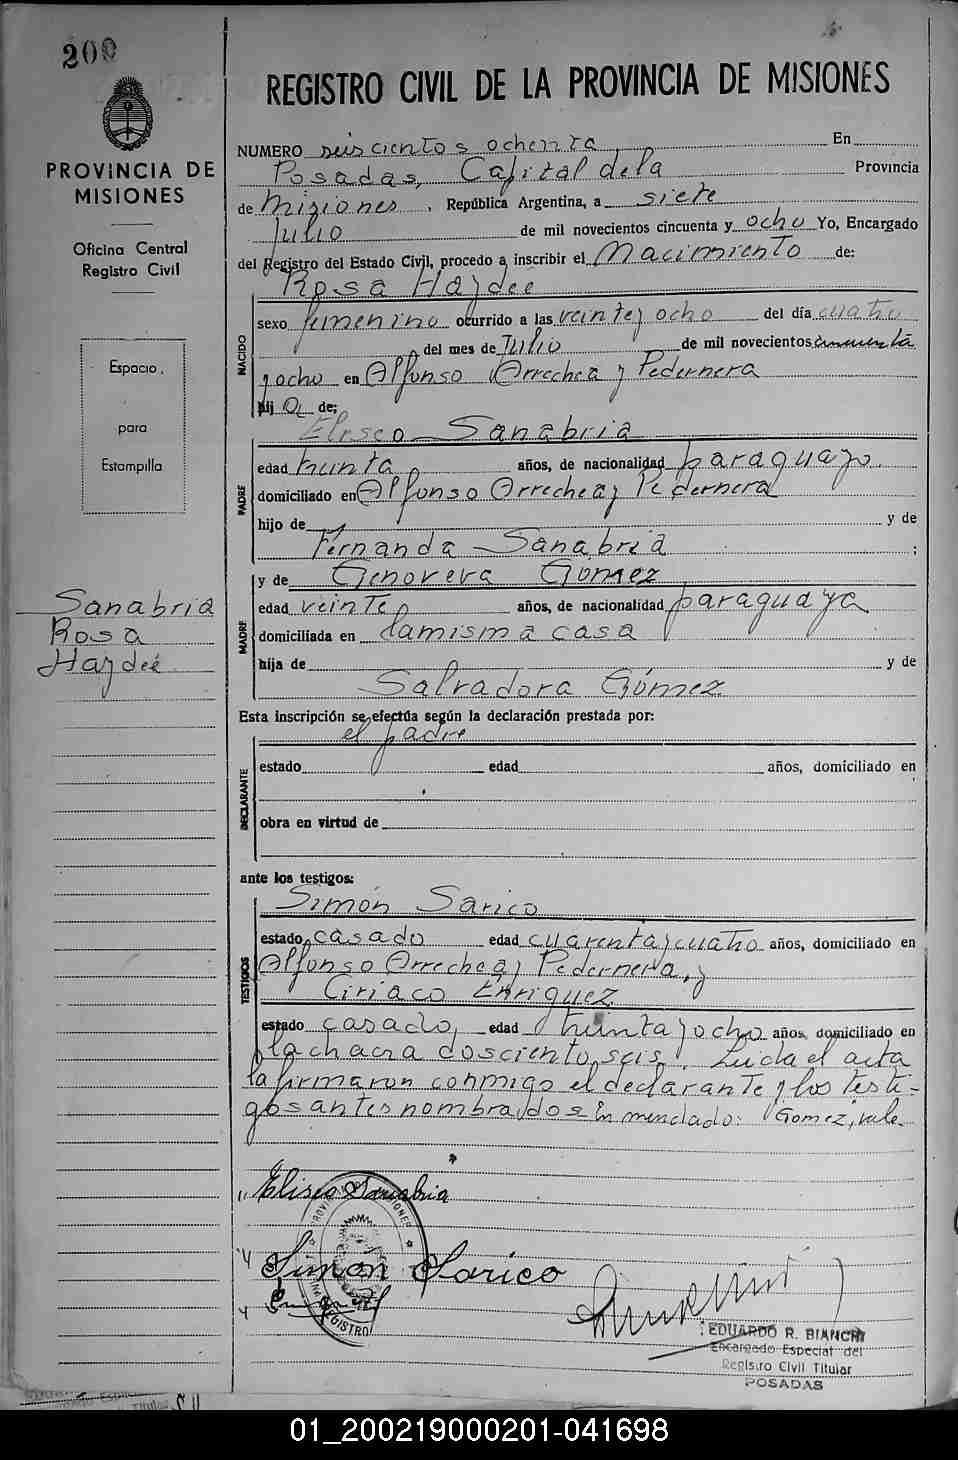 200
PROVINCIA DE
MISIONES
Oficina Central
Registro Civil
Espacio
para
Estampilla
Sanabria
Rosa
Haydeé
REGISTRO CIVIL DE LA PROVINCIA DE MISIONES
NUMERO seiscientos ochenta En
Posadas, Capital de la Provincia
de Misiones, República Argentina, a siete
Julio de mil novecientos cincuenta y ocho Yo, Encargado
del Registro del Estado Civil, procedo a inscribir el Nacimiento de:
Rosa Haydeé
NACIDO
sexo femenino ocurrido a las veinte y ocho del día cuatro
del mes de Julio de mil novecientos cincuenta
y ocho en Alfonso Arrechea y Pedernera
hij a de:
Eliseo Sanabria
PADRE
edad treinta años, de nacionalidad paraguayo.
domiciliado en Alfonso Arrechea y Pedernera
hijo de y de
Fernanda Sanabria ;
y de Genoveva Gomez
MADRE
edad veinte años, de nacionalidad paraguaya
domiciliada en la misma casa
hija de y de
Salvadora Gómez
Esta inscripción se efectúa según la declaración prestada por:
el padre
DECLARANTE
estado edad años, domiciliado en
obra en virtud de
ante los testigos:
Simón Sarico
TESTIGOS
estado casado edad cuarenta y cuatro años, domiciliado en
Alfonso Arrechea y Pedernera, y
Ciriaco Enriquez
estado casado, edad treinta y ocho años, domiciliado en
la chacra doscientos seis. Leida el acta
la firmaron conmigo el declarante y los testi-
gos antes nombrados = Enmendado: Gomez, vale.
Eliseo Sanabria
Simón Sarico
REGISTRO
EDUARDO R. BIANCHI
Encargado Especial del
Registro Civil Titular
POSADAS
01_200219000201-041698